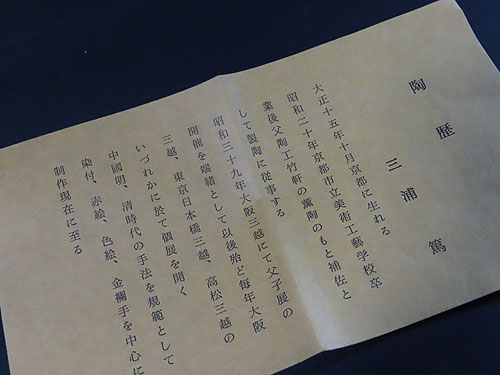 陶歴 三浦篤
大正十五年十月京都に生れる
昭和二十年京都市立美術工藝学校卒
業後父陶工竹軒の薫陶のもと補佐と
して製陶に従事する
昭和三十九年大阪三越にて父子展の
開催を端緒として以後殆ど毎年大阪
三越、東京日本橋三越、高松三越の
いづれかに於て個展を開く
中國明、清時代の手法を規範として
染付、赤絵、色絵、金襴手を中心に
制作現在に至る